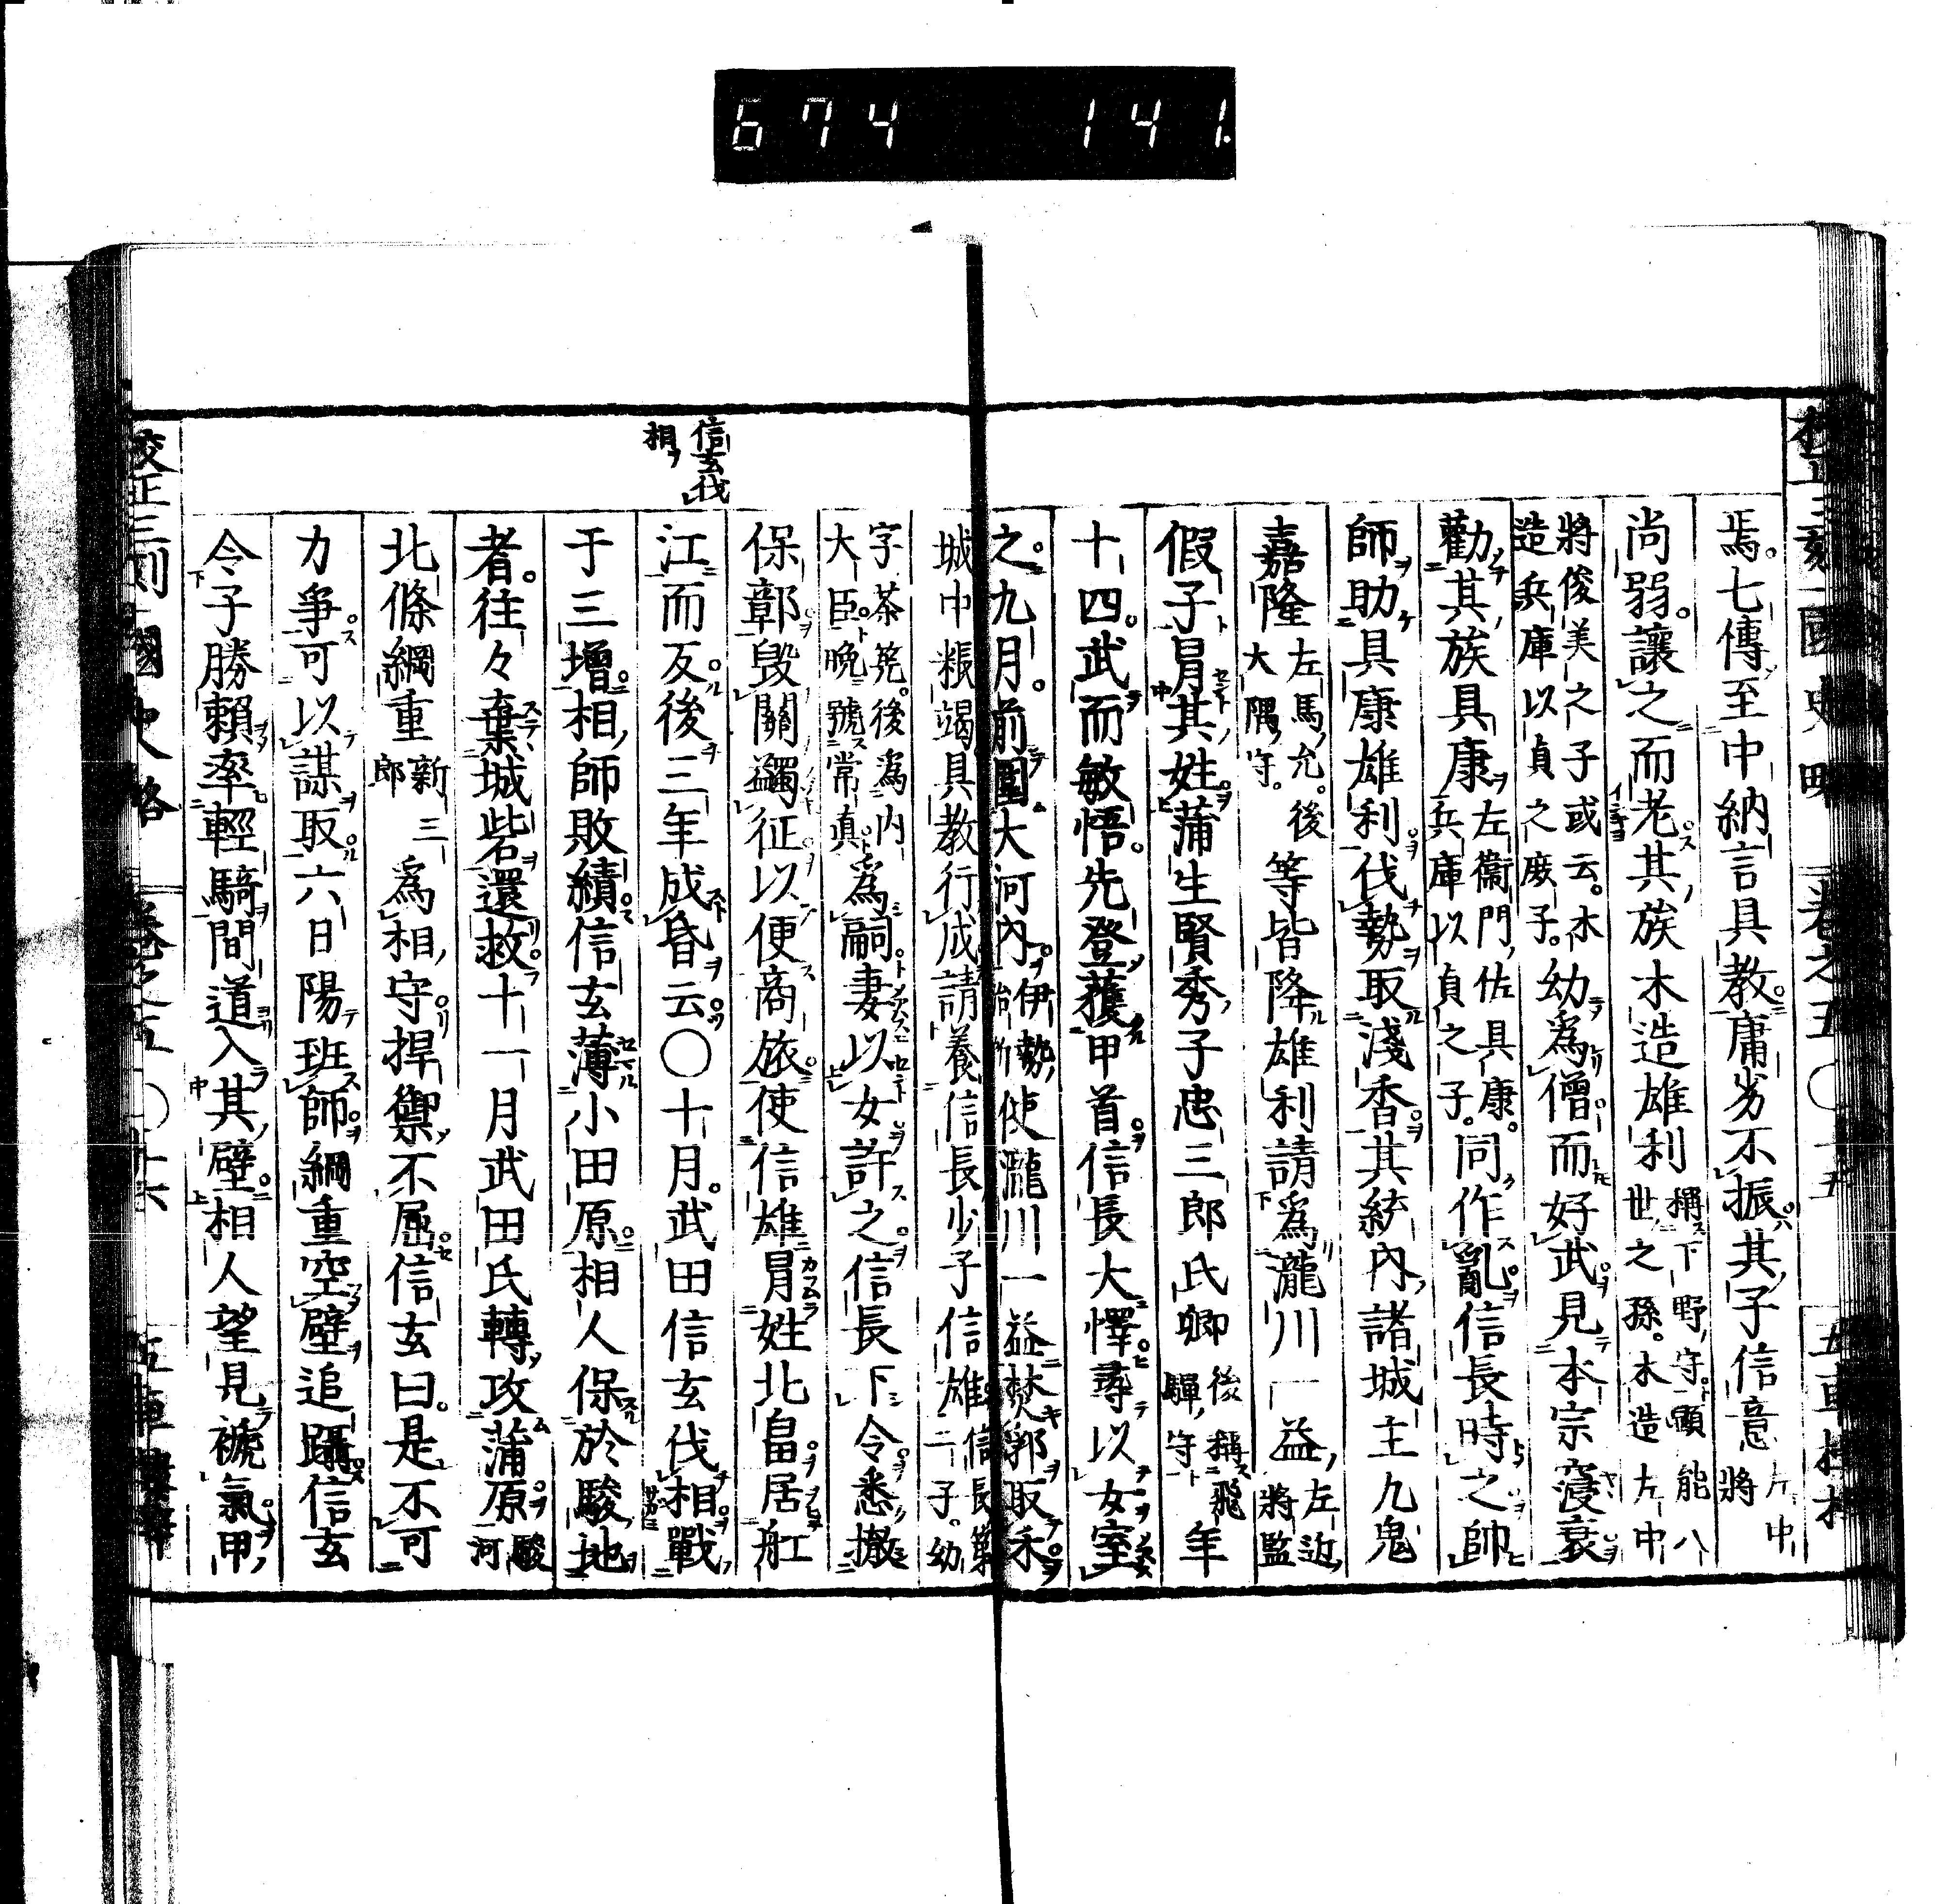 674 141
焉。七傳至中納言具教。庸劣不振。其子信意左中將
尚弱。讓之而老。其族木造雄利稱下野守。顯能八世之孫。木造左中
將俊美之子。或云。木造兵庫以貞之庶子。幼爲僧。而好武。見本宗寖衰
勸其族具康左衞門佐具康。兵庫以貞之子。同作亂。信長時之帥
師助具康雄利。伐勢。取淺香。其統內諸城主九鬼
嘉隆左馬允。後大隅守。等皆降。雄利請爲瀧川一益左近將監
假子。冒其姓。蒲生賢秀子忠三郎氏鄉後稱飛驒守年
十四。武而敏悟。先登獲甲首。信長大懌。尋以女室
之。九月。前圍大河內。伊勢使瀧川一益焚郛取禾。
城中粮竭。具教行成。請養信長少子信雄信長第二子。幼
字茶筅。後爲內大臣。晚號常眞爲嗣。妻以女。許之。信長下令。悉撤
保鄣。毀關蠲征。以便商旅。使信雄冒姓北畠。居舡
江而反。後三年成昏云。〇十月。武田信玄伐相。戰
于三增。相師敗績。信玄薄小田原。相人保於駿地
者。往々棄城砦還救。十一月武田氏轉攻蒲原駿河
北條綱重新三郎爲相守。捍禦不屈。信玄曰。是不可
力爭。可以謀取。六日陽班師。綱重空壁追躡。信玄
令子勝賴率輕騎間道入其壁。相人望見褫氣。甲
信玄伐
相
校正三刻國史略 卷之五 〇十五 五車樓梓
校正三刻國史略 卷之五 〇十六 五車樓梓